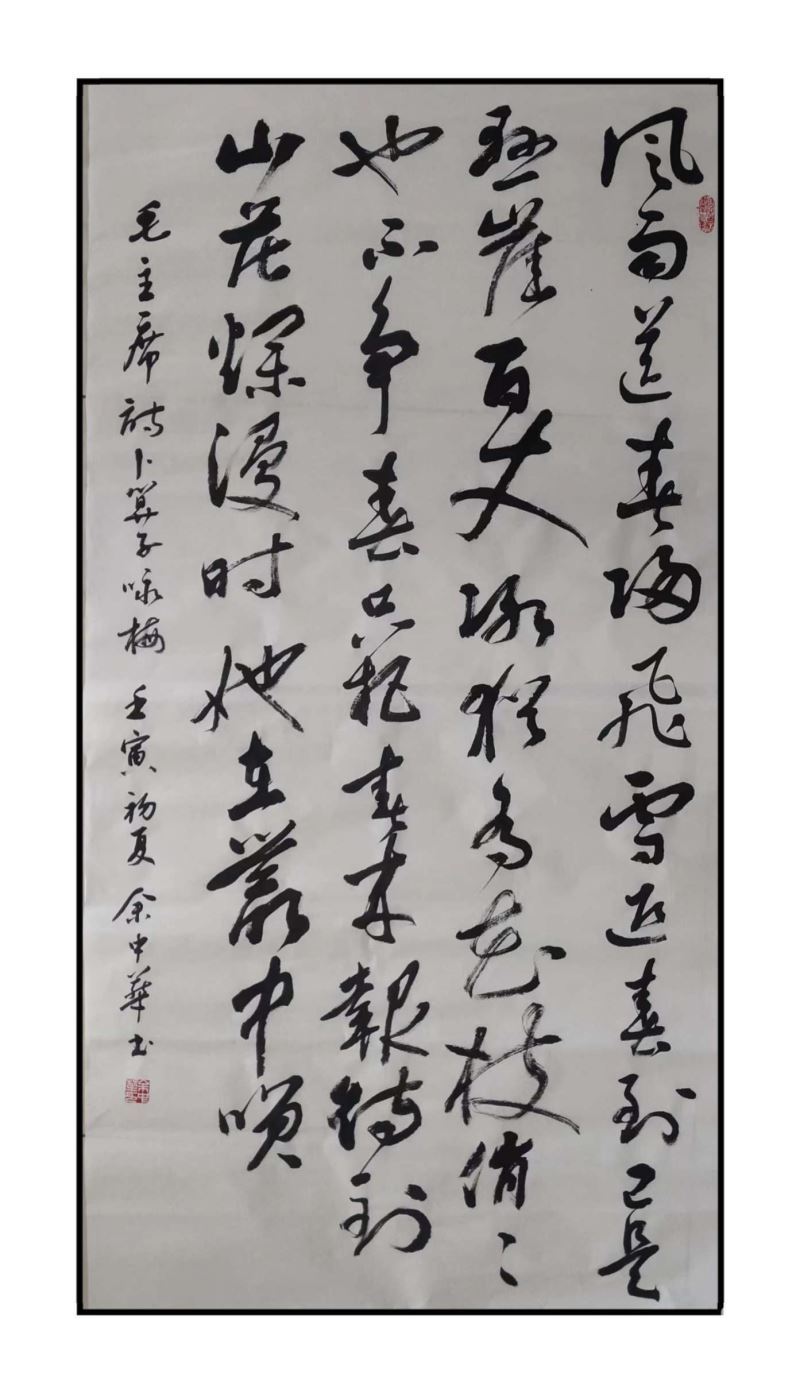 风雨送春归飛雪迎春到已是
悬崖百丈冰犹有花枝俏〻
也不争春只把春来報待到
山花烂漫时她在叢中咲
毛主席诗卜算子咏梅 壬寅初夏 余中華书